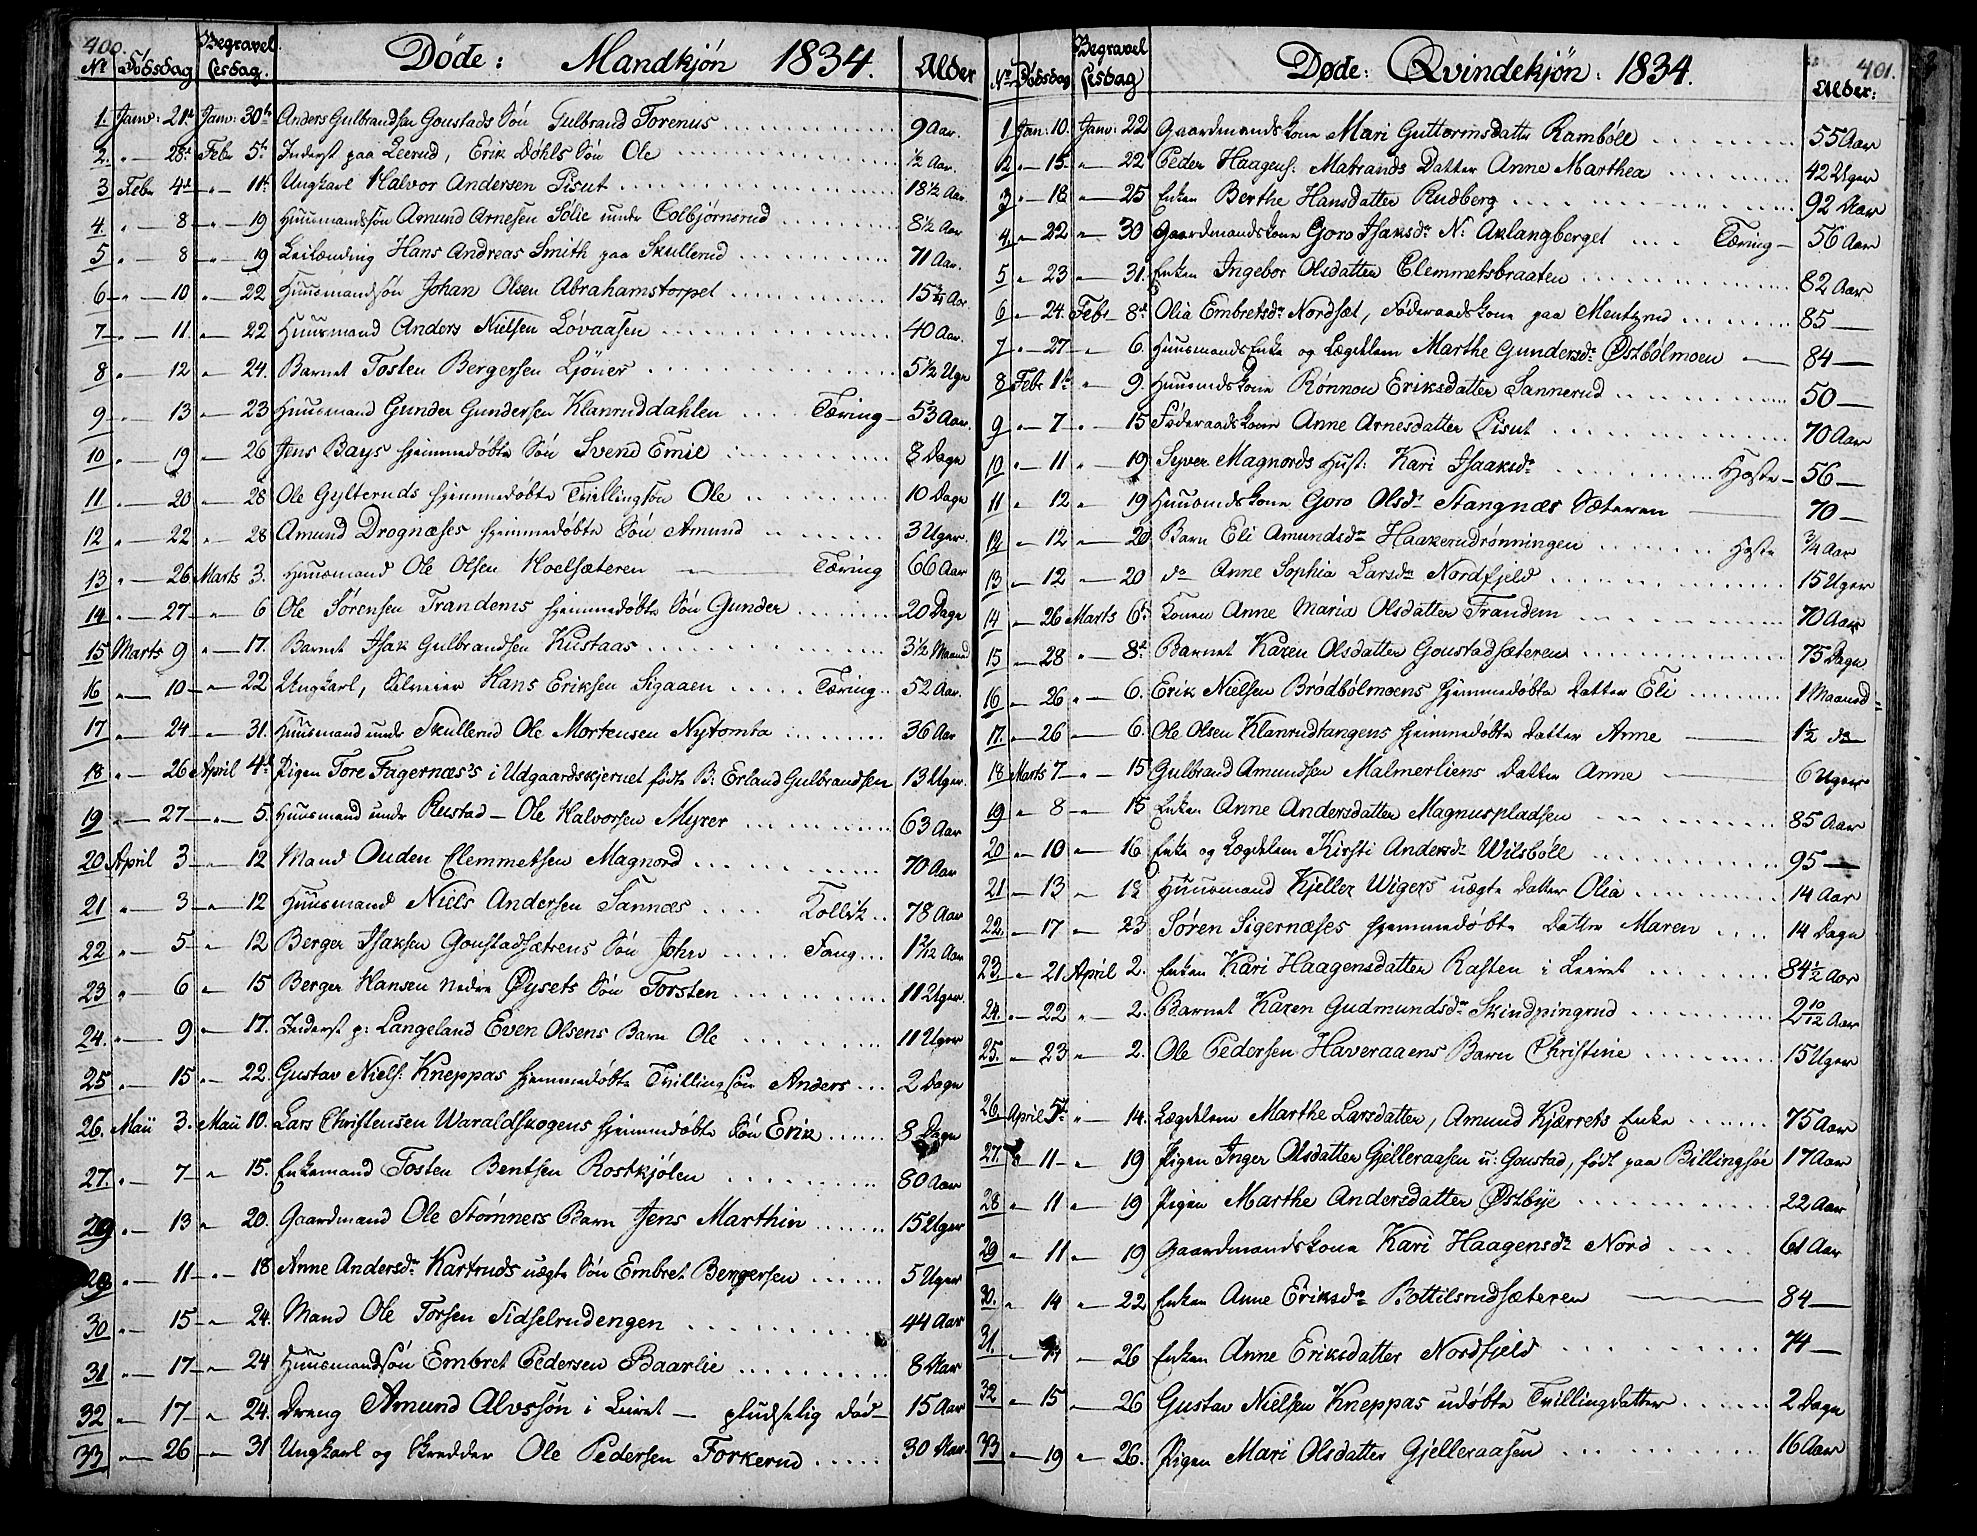 400.
Døde: Mandkjön 1834.
No Dödsdag Begravelsesdag. Alder
1. Janv: 21de Janv: 30te Anders Gulbrandsen Goustads Sön Gulbrand Torenius 9 Aar.
2. " 28de Febr 5te Inderst paa Leerud, Erik Døhls Sön Ole ½ Aar.
3 Febr 4de " 11te Ungkarl Halvor Andersen Pisut 18½ Aar.
4. " 8 " 19 Huusmandssön Amund Arnesen Solie under Colbjörnsrud 8½ Aar
5 " 8 " 19 Leilænding Hans Andreas Smith paa Skullerud 71 Aar.
6 " 10 " 22 Huusmandsön Johan Olsen Abrahamstorpet 15¾ Aar
7 " 11. " 22 Huusmand Anders Nielsen Løvaasen 40 Aar.
8 " 12 " 24. Barnet Tosten Bergersen Ljöner 5½ Uge
9 " 13 " 23 Huusmand Gunder Gundersen Klanruddahlen Tæring 53 Aar.
10 " 19 " 26 Jens Bays hjemmedøbte Sön Svend Emil 8 Dage
11. " 20 " 28 Ole Gylteruds hjemmedøbte Tvillingsön Ole 10 Dage
12 " 22 " 28 Amund Drognæses hjemmedøbte Sön Amund 3 Uger.
13 " 26 Marts 3. Huusmand Ole Olsen Hoelsæteren Tæring 66 Aar
14 " 27 " 6 Ole Sørensen Trandems hjemmedøbte Sön Gunder 20 Dage
15 Marts 9 " 17. Barnet Isak Gulbrandsen Kustaas 3½ Maaned
16 " 10 " 22 Ungkarl, Selveier Hans Eriksen Sigaaen Tæring 52 Aar.
17 " 24 " 31. Huusmand under Skullerud Ole Mortensen Nytomta 36 Aar
18 " 26 April 4de Pigen Tore Fagernæs's i Udgaardskjernet fødte B: Erland Gulbrandsen 13 Uger.
19 " 27 " 5. Huusmand under Rustad Ole Halvorsen Myrer 63 Aar
20 April 3 " 12 Mand Ouden Clemmetsen Magnord 70 Aar
21 " 3 " 12 Huusmand Niels Andersen Sannæs Kollik 78 Aar
22 " 5 " 12 Berger Isaksen Goustadsætrens Sön John Fang 1 2/12 Aar
23 " 6 " 15 Berger Hansen Nedre Øysets Sön Torsten 11 Uger.
24. " 9 " 17. Inderst p: Langeland Even Olsens Barn Ole 11 Uger
25 " 15 " 22. Gustav Niels: Kneppas hjemmedøbte Tvillingsön Anders 2 Dage
26. Maii 3. Maii 10. Lars Christensen Waraldskogens hjemmedøbte Sön Erik 8 Dage
27. " 7 " 15. Enkemand Tosten Bentsen Rostkjølen 80 Aar
" 13 " 20. Gaardmand Ole Stømners Barn Jens Marthin 15 Uger
" 11 " 18 Anne Andersdr Kartruds uægte Sön Embret Bergersen 5 Uger
30 " 15 " 24. Mand Ole Torsen Sidselrudengen 44 Aar
31 " 17 " 24 Huusmandsön Embret Pedersen Baarlie 8 Aar
32 " 17 " 24. Dreng Amund Alvssøn i Leiret pludselig død 15 Aar
33 " 26 " 31 Ungkarl og Skredder Ole Pedersen Forkerud 30 Aar.
401.
Døde: Qvindekjön: 1834.
No Dödsdag Begravelsesdag Alder:
1 Jan: 10. Janv: 22 Gaardmandskone Mari Guttormsdatter Ramböll 55 Aar
2 " 15 " 22 Peder Haagens: Matrands Datter Anne Marthea 42 Uger
3 " 18 " 25 Enken Berthe Hansdatter Rudberg 92 Aar
4 " 22 " 30 Gaardmandskone Goro Isaksdr N: Aklangberget Tæring 56 Aar
5 " 23 " 31. Enken Ingebor Olsdatter Clemmetsbraaten 82 Aar
6 " 24. Febr 8de Olia Embretsdr Nordsæt, Föderaadskone paa Mentzrud 85
7 " 27 " 6. Huusmands Enke og Lægdslem Marthe Gundersdr Østbölmoen 84
8 Febr 1te " 9. Huusmdskone Rønnou Eriksdatter Sannerud 50
9 " 7 " 15 Föderaadskone Anne Arnesdatter Pisut 70 Aar
10 " 11 " 19 Syver Magnords Hust: Kari Isaaksdr Hoste 56
11 " 12 " 19 Huusmdskone Goro Olsdr Stangnæs Sæteren 70
12 " 12 " 20 Barn Eli Amundsdr Haakerudrønningen Hoste ¾ Aar
13 " 12 " 20 do Anne Sophia Larsdr Nordfjeld 15 Uger
14 " 26 Marts 6te Konen Anne Maria Olsdatter Trandem 70 Aar
15 " 28 " 8de Barnet Karen Olsdatter Goustadsæteren 75 Dage
16 " 26 " 6. Erik Nielsen Brödbölmoens hjemmedøbte Datter Eli 1 Maaned
17. " 26 " 6. Ole Olsen Klanrudtangens hjemmedøbte Datter Anne 1½ do
18 Marts 7 " 15 Gulbrand Amundsen Malmerliens Datter Anne 6 Uger
19 " 8 " 15 Enken Anne Andersdatter Magnuspladsen 85 Aar
20 " 10 " 16 Enke og Lægdslem Kirsti Andersdr Wilsböll 95
21 " 13 " 18 Huusmand Kjeller Wigers uægte Datter Olia 14 Aar
22. " 17 " 23 Søren Sigernæses hjemmedøbte Datter Maren 14 Dage
23. " 21 April 2. Enken Kari Haagensdatter Rasten i Leiret 84½ Aar
24. " 22 " 2. Barnet Karen Gudmundsdr Skindpingrud 2 10/12 Aar
25. " 23 " 2. Ole Pedersen Haveraaens Barn Christine 15 Uger
26 April 5te " 14. Lægdslem Marthe Larsdatter, Amund Kjærrets Enke 75 Aar
27. " 11 " 19 Pigen Inger Olsdatter Gjelleraasen u: Goustad, født paa Billingsøe 17 Aar
28 " 11 " 19 Pigen Marthe Andersdatter Østbye 22 Aar
29 " 11 " 19 Gaardmandskone Kari Haagensdr Nord 61 Aar
30. " 14 " 22 Enken Anne Eriksdr Bottilsrudsæteren 84
31. " 26 Enken Anne Eriksdatter Nordfjeld 74
32 " 15 " 26 Gustav Nielsen Kneppas udöbte Tvillingdatter 2 Dage
33 " 19 " 26. Pigen Mari Olsdatter Gjelleraasen 16 Aar